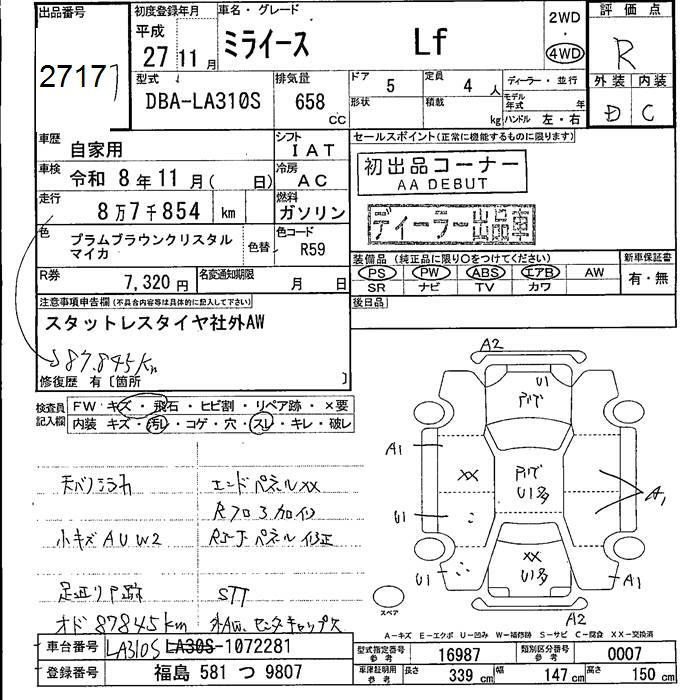 出品番号
27177
初度登録年月
平成
27年11月
車名・グレード
ミライース Lf
2WD
・
4WD
評価点
R
外装 内装
D C
型式
DBA-LA310S
排気量
658
CC
ドア
5
定員
4人
ディーラー・並行
形状
積載
kg
モデル年式 年
ハンドル 左・右
車歴
自家用
シフト
IAT
車検
令和 8年11月( 日)
冷房
AC
走行
8万7千854 km
燃料
ガソリン
色
プラムブラウンクリスタル
マイカ
色替
色コード
R59
R券
7,320円
名変通知期限
月 日
セールスポイント(正常に機能するものに限ります)
初出品コーナー
AA DEBUT
ディーラー出品車
装備品 (純正品に限り○をつけてください)
PS PW ABS エアB AW
SR ナビ TV カワ
新車保証書
有・無
後日品
注意事項申告欄(不具合内容等は具体的に記入して下さい)
スタットレスタイヤ社外AW
87.845Km
修復歴 有〔箇所 〕
検査員
記入欄
FW キズ・飛石・ヒビ割・リペア跡・×要
内装 キズ・汚れ・コゲ・穴・スレ・キレ・破レ
エンドパネルXX
小キズAUW2
STT
オド 87845km
A2
U1
A1
XX
U1多
A1
U1
XX
U1多
U1
A1
A2
スペア
A-キズ E-エクボ U-凹み W-補修跡 S-サビ C-腐食 XX-交換済
車台番号
LA310S LA30S-1072281
登録番号
福島 581 つ 9807
型式指定番号
参考
16987
類別区分番号
参考
0007
車庫証明用
参考
長さ 339 cm 幅 147 cm 高さ 150 cm